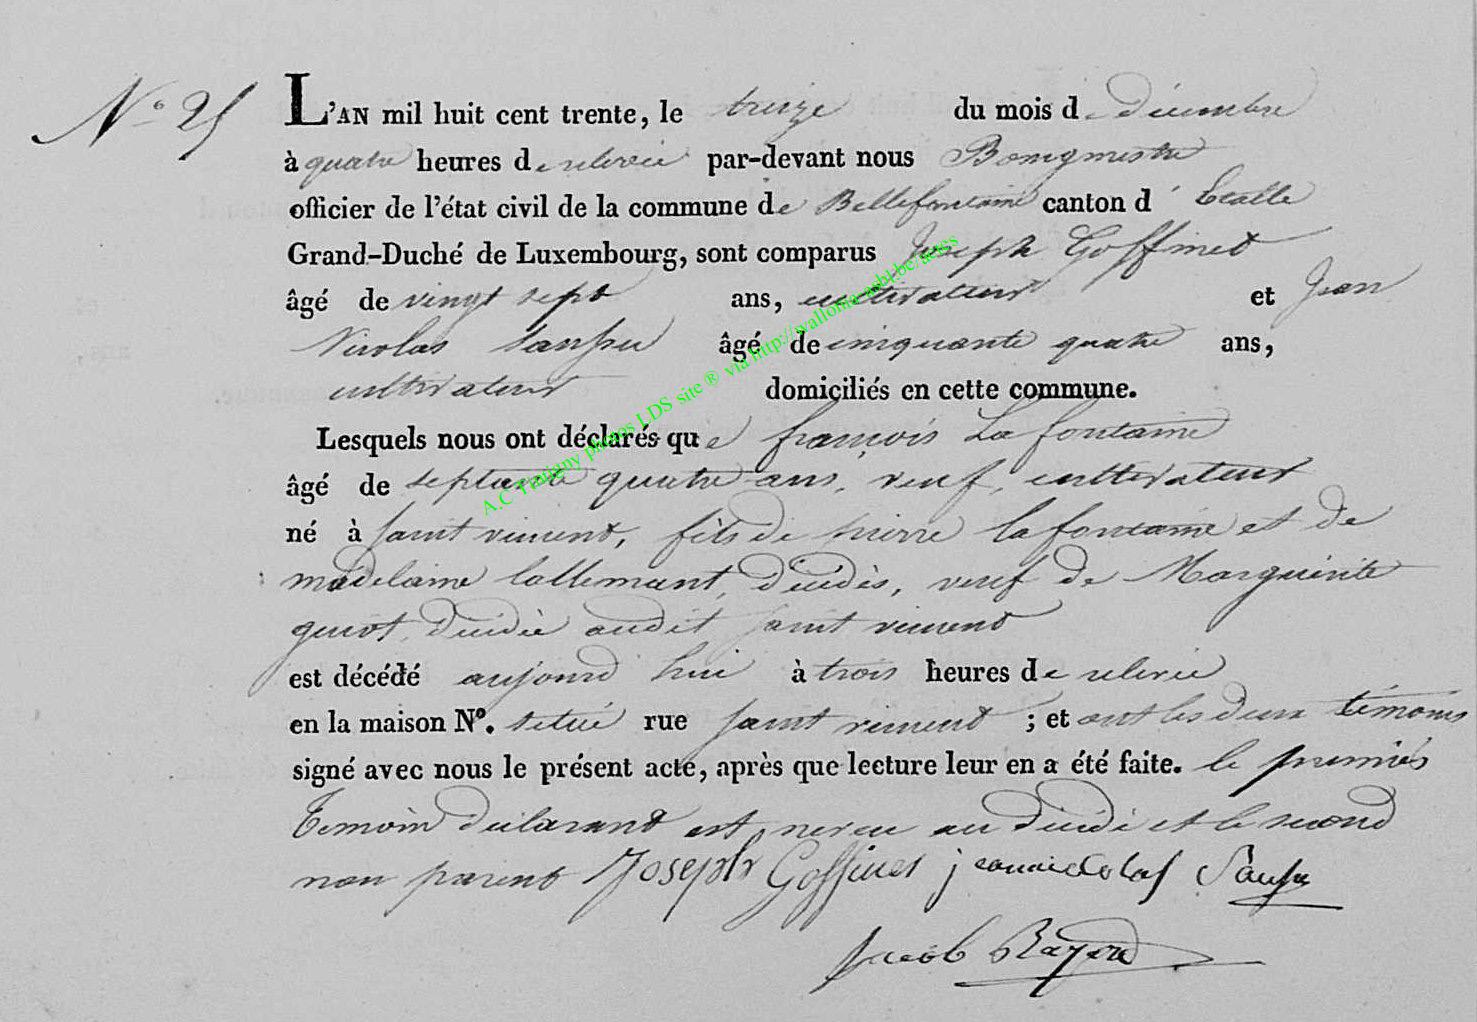 N° 25
L'AN mil huit cent trente, le treize du mois de décembre
à quatre heures de relevée par-devant nous Bourgmestre
officier de l'état civil de la commune de Bellefontaine canton d'Etalle
Grand-Duché de Luxembourg, sont comparus Joseph Goffinet
âgé de vingt sept ans, cultivateur et Jean
Nicolas Saupu âgé de cinquante quatre ans,
cultivateur domiciliés en cette commune.
Lesquels nous ont déclarés que françois La fontaine
âgé de septante quatre ans, veuf, cultivateur
né à saint vincent, fils de pierre la fontaine et de
madelaine lallemant, décédés, veuf de Marguerite
guiot, décédée audit saint vincent
est décédé aujourd'hui à trois heures de relevée
en la maison N°. situé rue saint vincent ; et ont les deux témoins
signé avec nous le présent acte, après que lecture leur en a été faite. le premier
Témoin déclarant est neveu au décédé et le second
non parent Joseph Goffinet jeannicolas Saupu
Jacob
A.C Tintigny photos LDS site ® via http://wallonia-asbl.be/actes